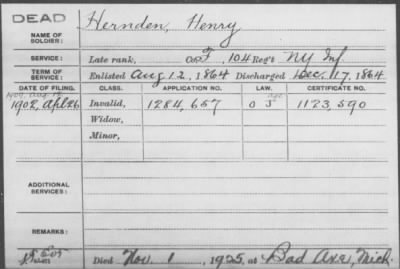 DEAD
NAME OF SOLDIER: Hernden, Henry
SERVICE: Late rank, Co. F, 104 Reg't NY Inf.
TERM OF SERVICE: Enlisted Aug 12, 1864 Discharged Dec. 17, 1864
DATE OF FILING. CLASS. APPLICATION NO. LAW. CERTIFICATE NO.
1902, Apl 26 Invalid, 1284,657 1123,590
Widow,
Minor,
ADDITIONAL SERVICES:
REMARKS:
Died Nov. 1, 1925, at Bad Axe, Mich.